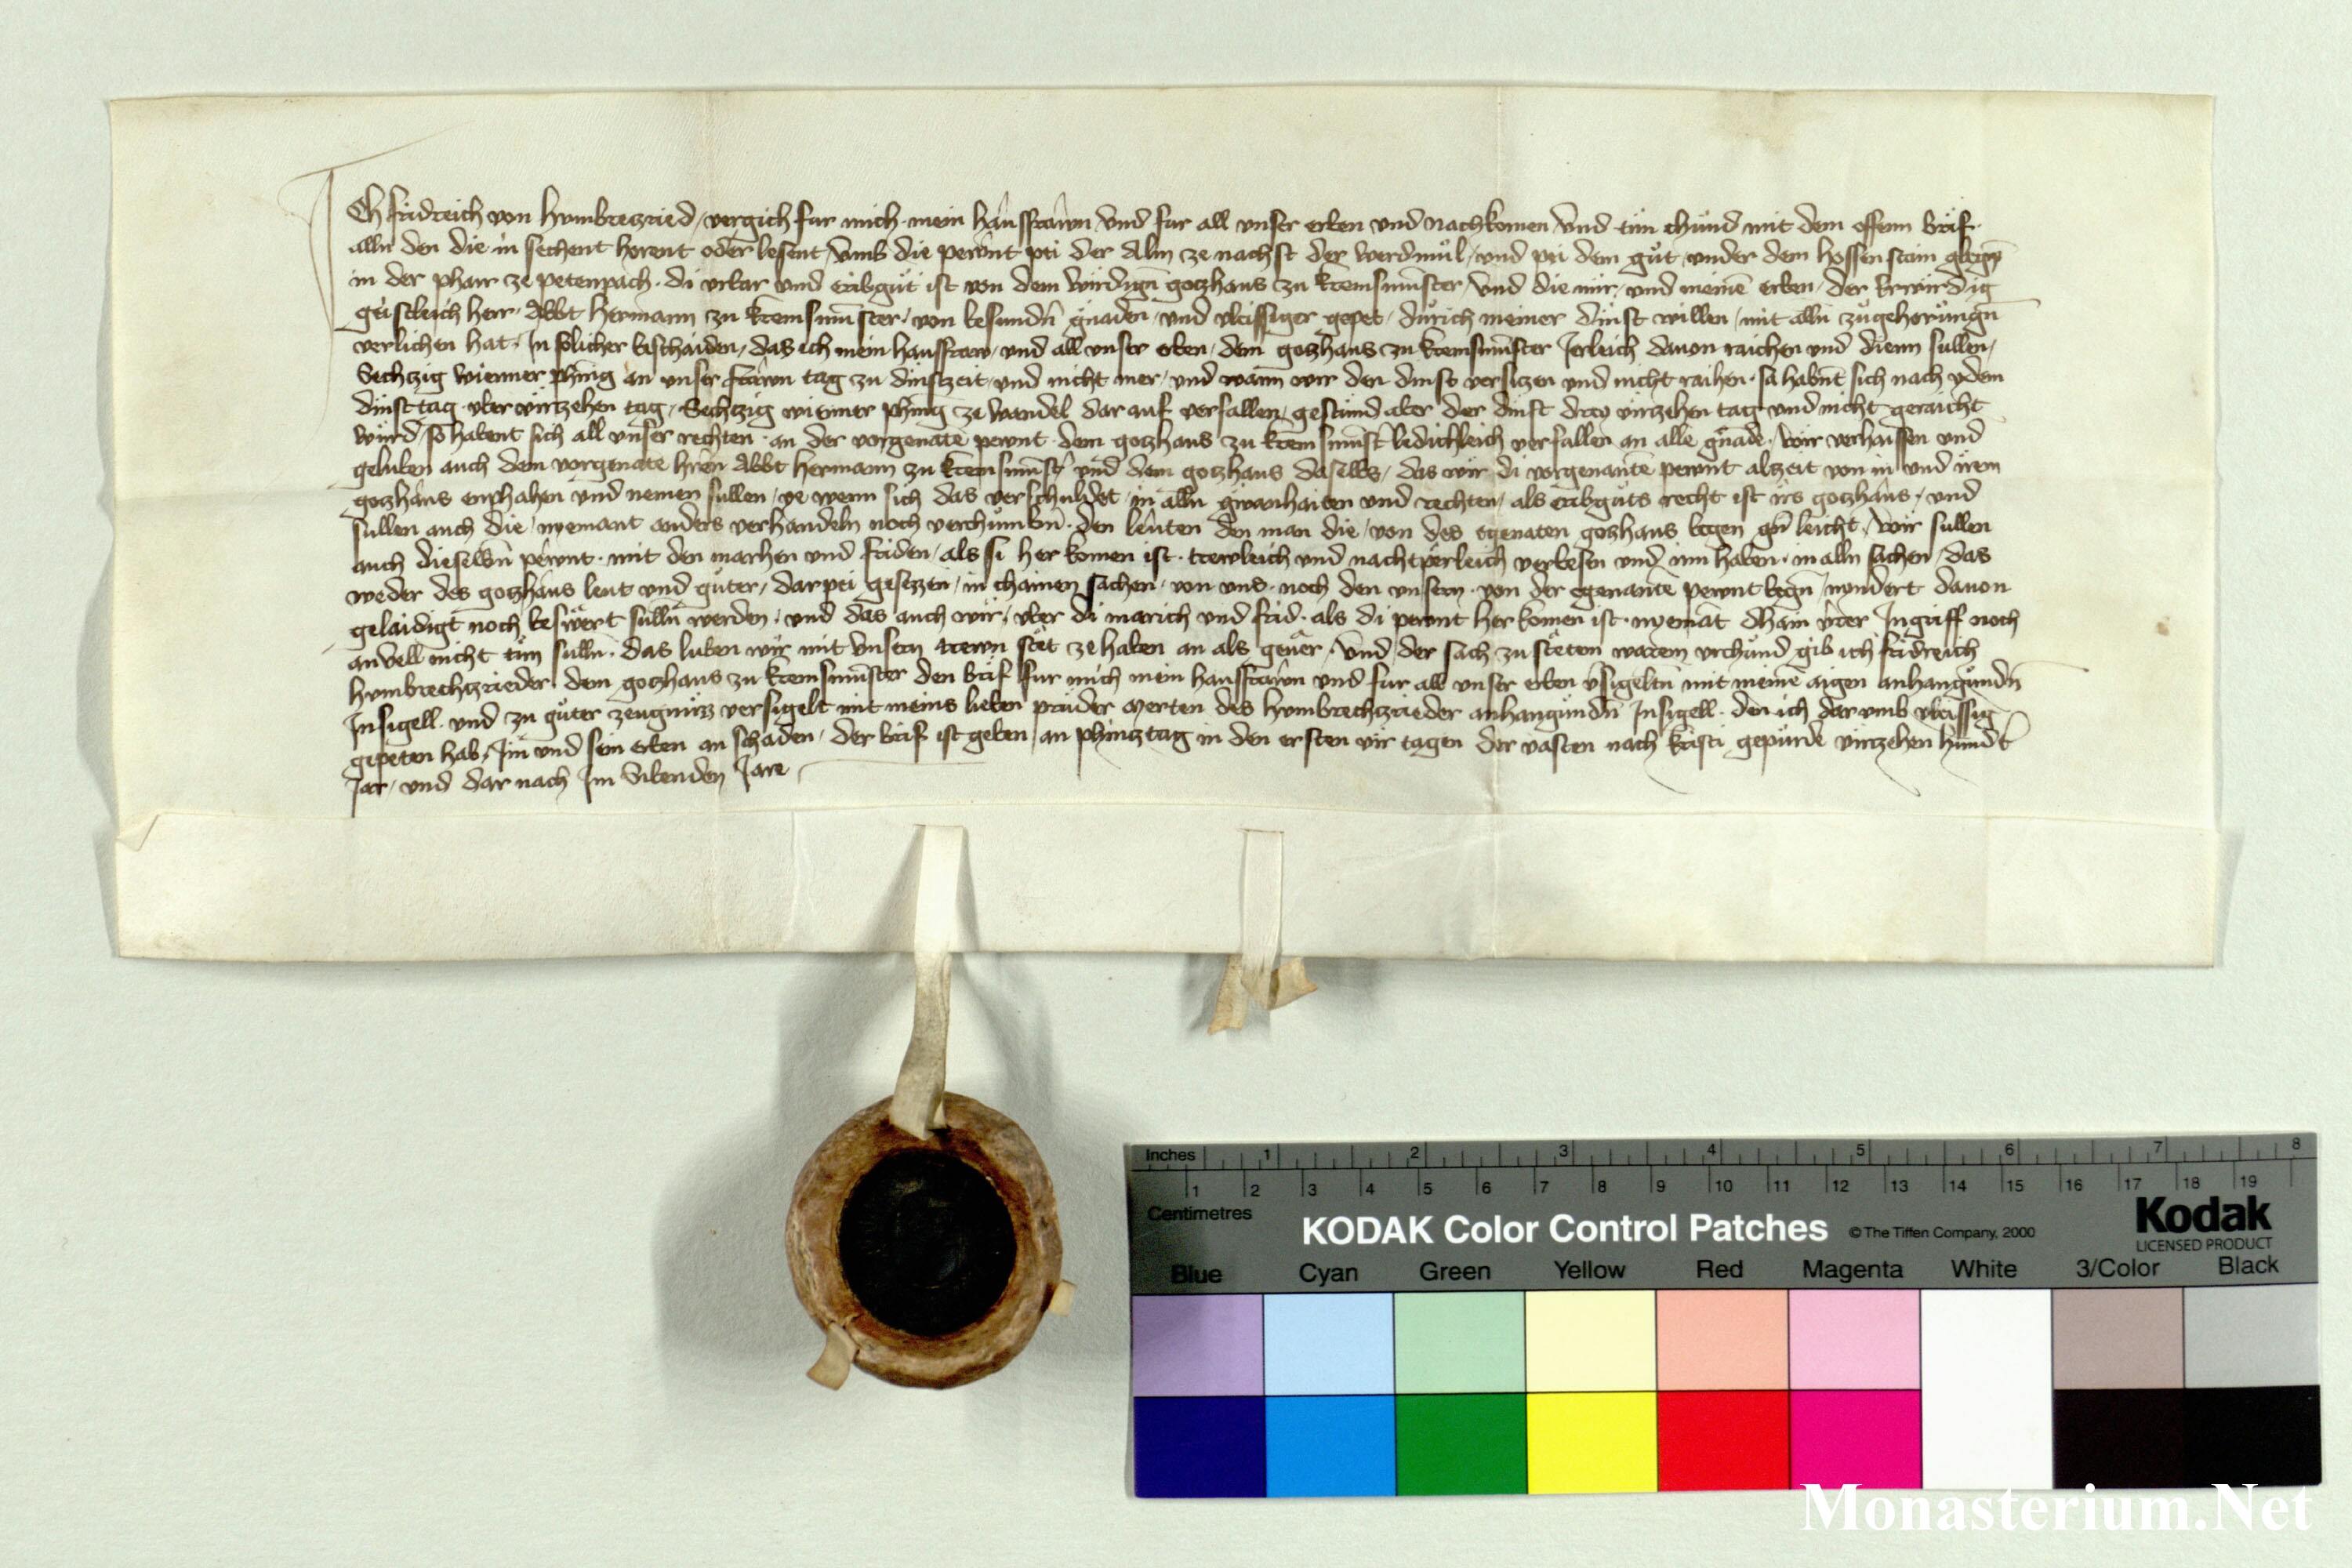 Ich fridreich von Humbrezried / vergich fur mich mein hausfrawn vnd fur all vnser erben vnd nachkomen Vnd tun chund mit dem offenn brif
alln den die in sechent horent oder lesent / Vmb die pewnt pei der Alm ze nachst der werdmul / vnd pei dem gut vnder dem hossenstain glegn
in der pharr ze petenpach di vrbar vnd eribgut ist von dem wirdign gotzhaus zu kremsmunster / Vnd die mir / vnd meinē erben / der Erwirdig
geistleich herr Abbt Hermann zu kremsmunster / von besundn̄ gnaden / vnd vleissiger gepet / durich meiner dinst willen / mit alln zugehorungn
verlichen hat / In solicher beschaiden / das ich mein hausfraw / vnd all vnser erben / dem gotzhaus zu kremsmunster Jerleich dauon raichen vnd dienn sullen /
Sechzig wienner phenig an vnser frawn tag zu dinstzeit / vnd nicht mer / vnd wann wir den dinst versitzen vnd nicht raihen sa habnt sich nach ydem
dinsttag vber virzehen tag / Sechtzig wienner phenig ze wandel dar auf verfallen / gestund aber der dinst drey virzehen tag vnd nicht geraicht
wurd / so habent sich all vnser rechten an der vorgenatē pewnt dem gotzhaus zu kremsmunst̄ ledichleich verfallen an alle gnade / wir verhaissen vnd
geluben auch dem vorgenatē hren Abbt hermann zu kremsmunst̄ vnd dem gotzhaus daselbs / das wir di vorgenantē pewnt alzeit von in vnd irem
gotzhaus enphahen vnd nemen sullen / ye wenn sich das verschuldet / in alln gwanhaiten vnd rechten / als eribguts recht ist irs gotzhaus / vnd
sullen auch die / nyemant anders verhandeln noch verchumbn̄ den leuten den man die / von des egenaten gotzhaus wegen gn̄ leicht / wir sullen
auch dieselbn̄ pewnt mit den marhen vnd friden / als si her komen ist trewleich vnd nachtperleich verbesen vnd inn haben in alln sachen / das
weder des gotzhaus leut vnd guter / dar pei gesezzen / in chainen sachen von vns noch den vnsern von der egenantē pewnt wegn / nyndert dauon
gelaidigt noch beswert sulln werden / vnd das auch wir / vber di marich vnd frid als di pewnt her komen ist nyemāt dhain vber Ingriff noch
anvell nicht tun sulln das luben wir mit vnsern trewn stet ze haben an als geuer / Vnd der sach zu steten warem vrchund gib ich fridreich
humbrechzrieder dem gotzhaus zu kremsmunster den brif fur mich mein hausfrawn vnd fur all vnser erben v̄sigeltn mit meinē aigen anhangundn̄
Insigell vnd zu guter zeugnuzz versigelt mit meins lieben pruder Merten des humbrechzrieder anhangundn̄ Insigell den ich dar vmb vleissig
gepeten hab / Im vnd sein erben an schaden / der brif ist geben an phincztag in den ersten vir tagen der vasten nach kristi gepurde virzehen hundt
Jar / vnd dar nach Im Sibenden Jare
Inches 1 2 3 4 5 6 7 8
1 2 3 4 5 6 7 8 9 10 11 12 13 14 15 16 17 18 19
Centimetres
KODAK Color Control Patches © The Tiffen Company, 2000
Kodak
LICENSED PRODUCT
Blue Cyan Green Yellow Red Magenta White 3/Color Black
Monasterium.Net